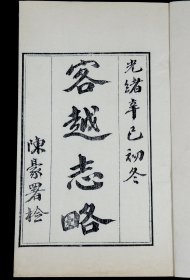 光緒辛巳初冬
客越志略
陳豪署檢